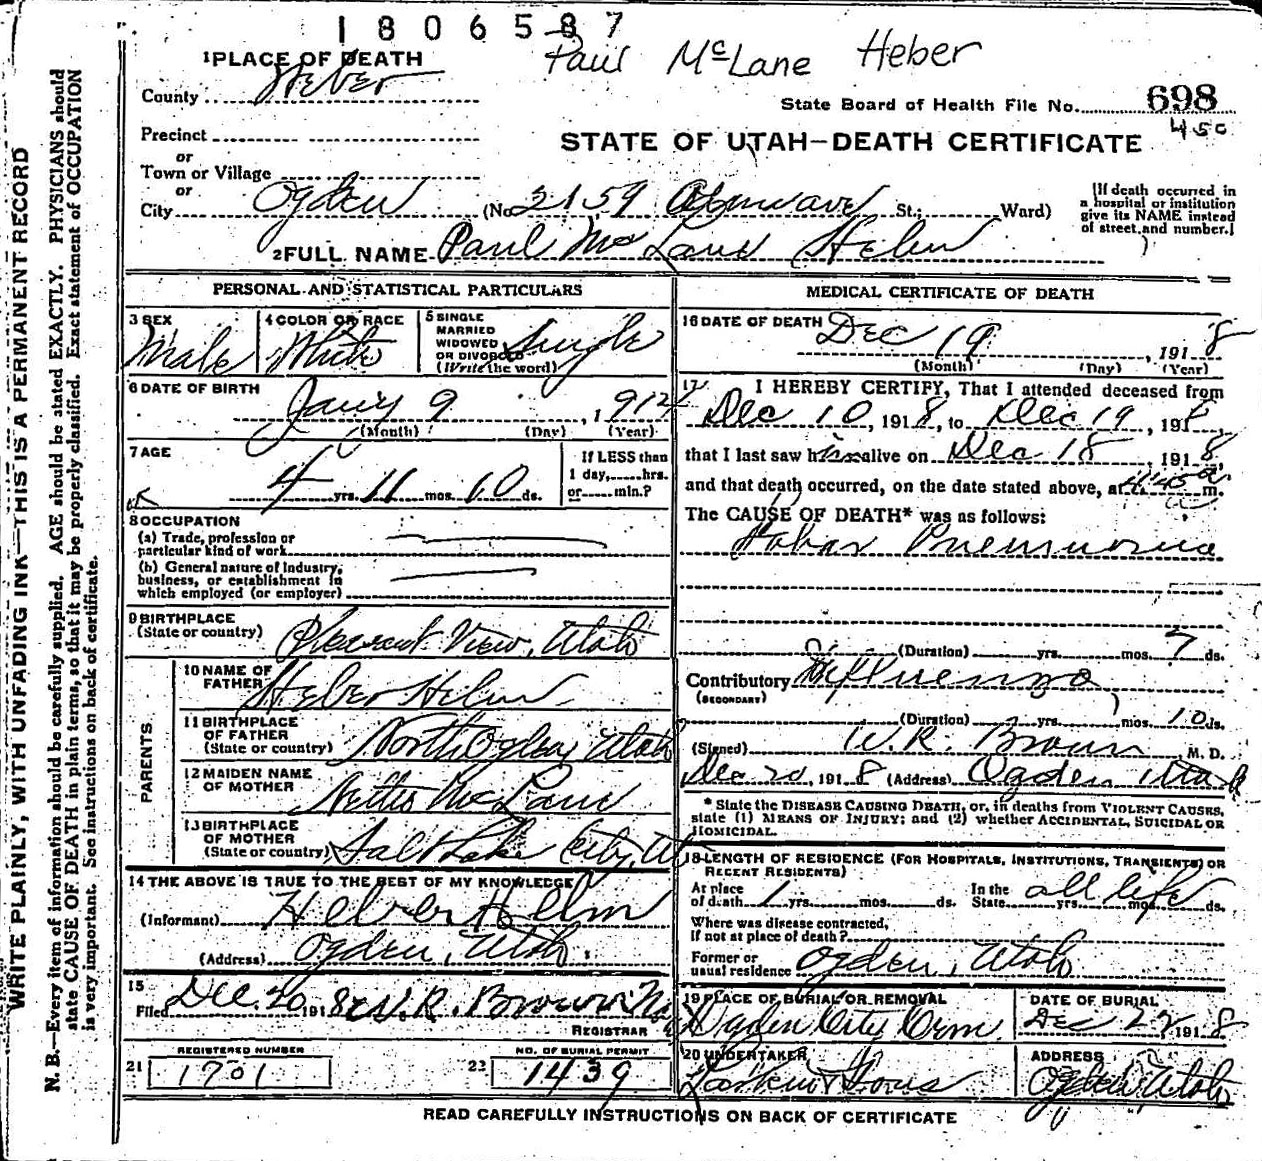 1806587
Paul McLane Heber
1 PLACE OF DEATH
County Weber
State Board of Health File No. 698
450
Precinct
or
Town or Village
or
STATE OF UTAH—DEATH CERTIFICATE
City Ogden (No. 2159 St.; Ward)
[If death occurred in
a hospital or institution
give its NAME instead
of street and number.]
2 FULL NAME Paul Mc Lane Helm
PERSONAL AND STATISTICAL PARTICULARS
3 SEX
Male
4 COLOR OR RACE
White
5 SINGLE
MARRIED
WIDOWED
OR DIVORCED
(Write the word)
Single
6 DATE OF BIRTH
Jany 9, 191
(Month) (Day) (Year)
7 AGE
4 yrs. 11 mos. 10 ds.
If LESS than
1 day, hrs.
or min.?
8 OCCUPATION
(a) Trade, profession or
particular kind of work
(b) General nature of Industry,
business, or establishment in
which employed (or employer)
9 BIRTHPLACE
(State or country) Pleasant View, Utah
PARENTS
10 NAME OF
FATHER Heber Helm
11 BIRTHPLACE
OF FATHER
(State or country) North Ogden, Utah
12 MAIDEN NAME
OF MOTHER Nettie McLane
13 BIRTHPLACE
OF MOTHER
(State or country) Salt Lake City, Ut
14 THE ABOVE IS TRUE TO THE BEST OF MY KNOWLEDGE
(Informant) Heber Helm
(Address) Ogden, Utah
15
Filed Dec. 20, 1918 W. R. Brown
REGISTRAR
21 REGISTERED NUMBER
1701
22 NO. OF BURIAL PERMIT
1439
MEDICAL CERTIFICATE OF DEATH
16 DATE OF DEATH Dec 19, 1918
(Month) (Day) (Year)
17 I HEREBY CERTIFY, That I attended deceased from
Dec 10, 1918, to Dec 19, 1918,
that I last saw him alive on Dec 18, 1918,
and that death occurred, on the date stated above, at 4:45 a m.
The CAUSE OF DEATH* was as follows:
Lobar Pneumonia
(Duration) yrs. mos. 7 ds.
Contributory Influenza
(SECONDARY)
(Duration) yrs. mos. 10 ds.
(Signed) W. R. Brown M. D.
Dec 20, 1918 (Address) Ogden Utah
* State the DISEASE CAUSING DEATH, or, in deaths from VIOLENT CAUSES,
state (1) MEANS OF INJURY; and (2) whether ACCIDENTAL, SUICIDAL OR
HOMICIDAL.
18 LENGTH OF RESIDENCE (FOR HOSPITALS, INSTITUTIONS, TRANSIENTS, OR
RECENT RESIDENTS)
At place
of death 1 yrs. mos. ds.
In the
State all life yrs. mos. ds.
Where was disease contracted,
If not at place of death?
Former or
usual residence Ogden, Utah
19 PLACE OF BURIAL OR REMOVAL
Ogden City Cem
DATE OF BURIAL
Dec 22 1918
20 UNDERTAKER
Larkin & Sons
ADDRESS
Ogden, Utah
READ CAREFULLY INSTRUCTIONS ON BACK OF CERTIFICATE
WRITE PLAINLY, WITH UNFADING INK—THIS IS A PERMANENT RECORD
N. B.—Every item of information should be carefully supplied. AGE should be stated EXACTLY. PHYSICIANS should
state CAUSE OF DEATH in plain terms, so that it may be properly classified. Exact statement of OCCUPATION
is very important. See instructions on back of certificate.